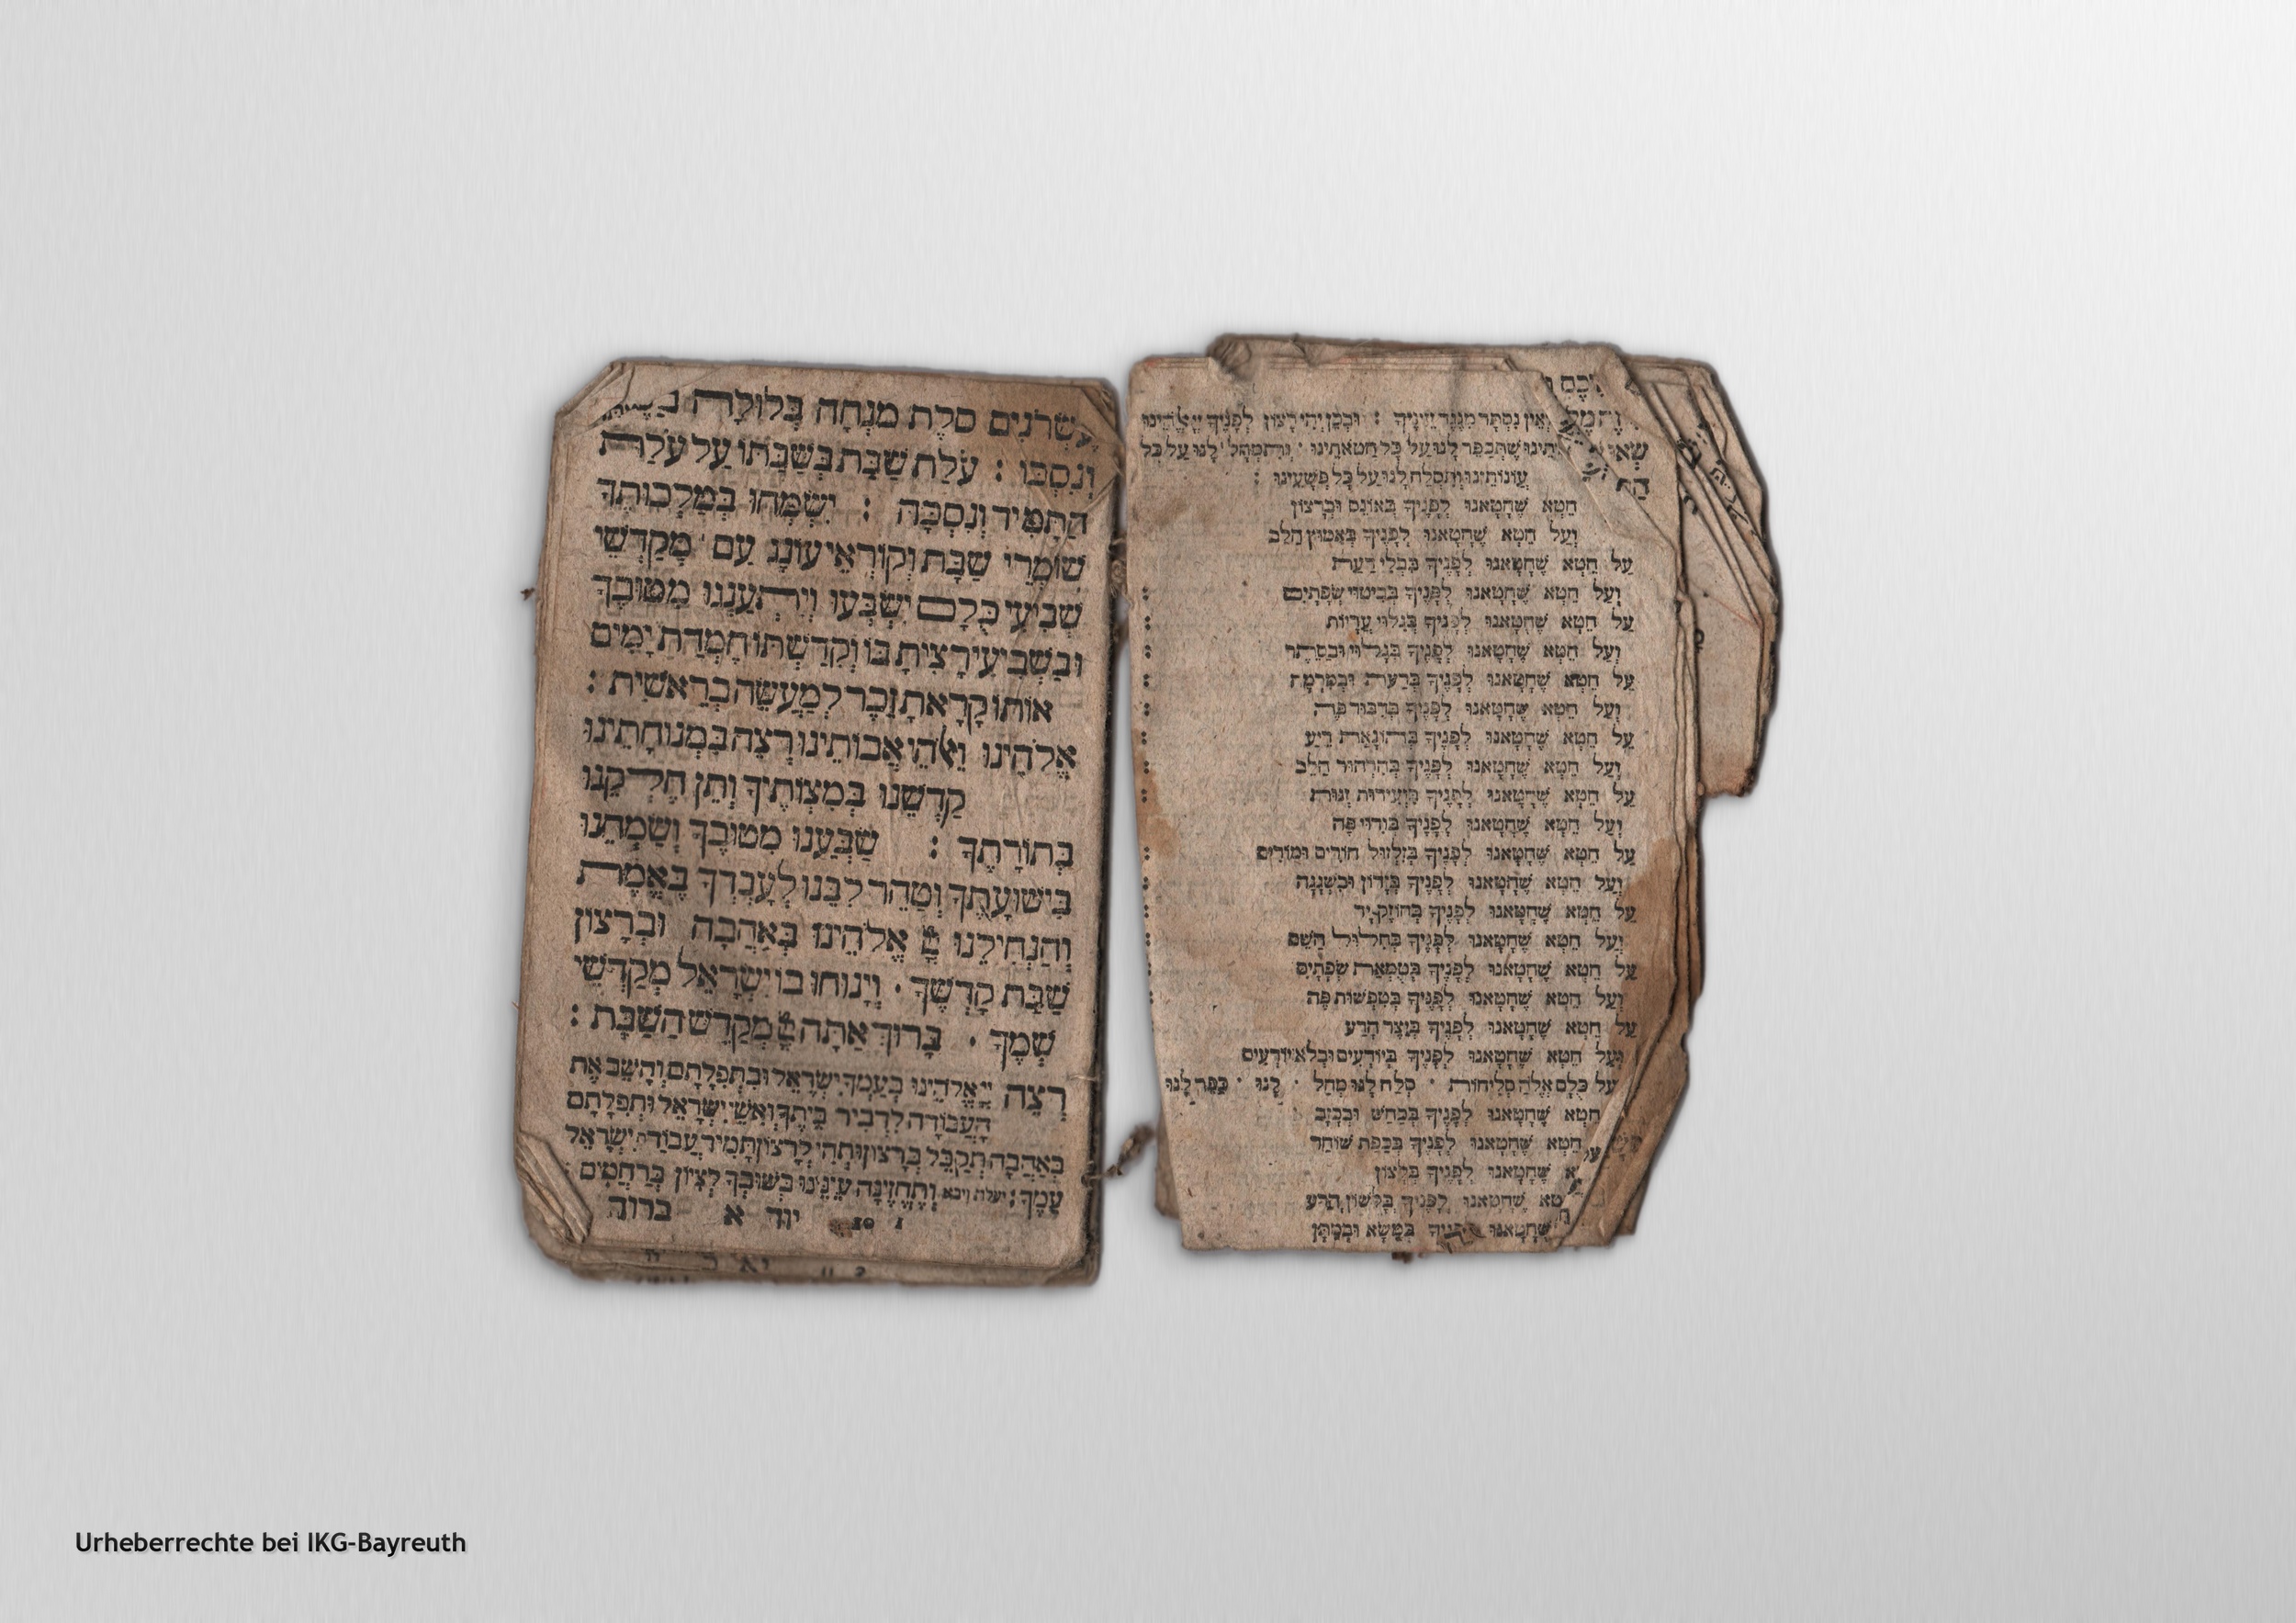 וְאֵין נִסְתָּר מִנֶּגֶד עֵינֶיךָ : וּבְכֵן יְהִי רָצוֹן לְפָנֶיךָ יְיָ אֱלֹהֵינוּ
שֶׁתְּכַפֵּר לָנוּ עַל כָּל חַטֹּאתֵינוּ · וְתִמְחָל לָנוּ עַל כָּל
עֲוֹנוֹתֵינוּ וְתִסְלַח לָנוּ עַל כָּל פְּשָׁעֵינוּ :
חֵטְא שֶׁחָטָאנוּ לְפָנֶיךָ בְּאוֹנֶס וּבְרָצוֹן
וְעַל חֵטְא שֶׁחָטָאנוּ לְפָנֶיךָ בְּאִמּוּץ הַלֵּב
עַל חֵטְא שֶׁחָטָאנוּ לְפָנֶיךָ בִּבְלִי דַעַת
וְעַל חֵטְא שֶׁחָטָאנוּ לְפָנֶיךָ בְּבִטּוּי שְׂפָתָיִם :
עַל חֵטְא שֶׁחָטָאנוּ לְפָנֶיךָ בְּגִלּוּי עֲרָיוֹת
וְעַל חֵטְא שֶׁחָטָאנוּ לְפָנֶיךָ בְּגָלוּי וּבַסֵּתֶר :
עַל חֵטְא שֶׁחָטָאנוּ לְפָנֶיךָ בְּדַעַת וּבְמִרְמָה :
וְעַל חֵטְא שֶׁחָטָאנוּ לְפָנֶיךָ בְּדִבּוּר פֶּה :
עַל חֵטְא שֶׁחָטָאנוּ לְפָנֶיךָ בְּהוֹנָאַת רֵיעַ :
וְעַל חֵטְא שֶׁחָטָאנוּ לְפָנֶיךָ בְּהִרְהוּר הַלֵּב :
עַל חֵטְא שֶׁחָטָאנוּ לְפָנֶיךָ בִּוְעִידוֹת זְנוּת :
וְעַל חֵטְא שֶׁחָטָאנוּ לְפָנֶיךָ בְּוִדּוּי פֶּה
עַל חֵטְא שֶׁחָטָאנוּ לְפָנֶיךָ בְּזִלְזוּל הוֹרִים וּמוֹרִים :
וְעַל חֵטְא שֶׁחָטָאנוּ לְפָנֶיךָ בְּזָדוֹן וּבִשְׁגָגָה :
עַל חֵטְא שֶׁחָטָאנוּ לְפָנֶיךָ בְּחוֹזֶק יָד :
וְעַל חֵטְא שֶׁחָטָאנוּ לְפָנֶיךָ בְּחִלּוּל הַשֵּׁם :
עַל חֵטְא שֶׁחָטָאנוּ לְפָנֶיךָ בְּטֻמְאַת שְׂפָתָיִם :
וְעַל חֵטְא שֶׁחָטָאנוּ לְפָנֶיךָ בְּטִפְשׁוּת פֶּה :
עַל חֵטְא שֶׁחָטָאנוּ לְפָנֶיךָ בְּיֵצֶר הָרַע
וְעַל חֵטְא שֶׁחָטָאנוּ לְפָנֶיךָ בְּיוֹדְעִים וּבְלֹא יוֹדְעִים
עַל כֻּלָּם אֱלוֹהַּ סְלִיחוֹת · סְלַח לָנוּ מְחַל · לָנוּ · כַּפֶּר לָנוּ
חֵטְא שֶׁחָטָאנוּ לְפָנֶיךָ בְּכַחַשׁ וּבְכָזָב
חֵטְא שֶׁחָטָאנוּ לְפָנֶיךָ בְּכַפַּת שׁוֹחַד
שֶׁחָטָאנוּ לְפָנֶיךָ בְּלָצוֹן
שֶׁחָטָאנוּ לְפָנֶיךָ בְּלָשׁוֹן הָרַע
שֶׁחָטָאנוּ לְפָנֶיךָ בְּמַשָּׂא וּבְמַתָּן
עֶשְׂרֹנִים סֹלֶת מִנְחָה בְּלוּלָה
וְנִסְכּוֹ : עֹלַת שַׁבַּת בְּשַׁבַּתּוֹ עַל עֹלַת
הַתָּמִיד וְנִסְכָּהּ : יִשְׂמְחוּ בְמַלְכוּתְךָ
שׁוֹמְרֵי שַׁבָּת וְקוֹרְאֵי עוֹנֶג עַם מְקַדְּשֵׁי
שְׁבִיעִי כֻּלָּם יִשְׂבְּעוּ וְיִתְעַנְּגוּ מִטּוּבֶךָ
וּבַשְּׁבִיעִי רָצִיתָ בּוֹ וְקִדַּשְׁתּוֹ חֶמְדַּת יָמִים
אוֹתוֹ קָרָאתָ זֵכֶר לְמַעֲשֵׂה בְרֵאשִׁית :
אֱלֹהֵינוּ וֵאלֹהֵי אֲבוֹתֵינוּ רְצֵה בִמְנוּחָתֵינוּ
קַדְּשֵׁנוּ בְּמִצְוֹתֶיךָ וְתֵן חֶלְקֵנוּ
בְּתוֹרָתֶךָ : שַׂבְּעֵנוּ מִטּוּבֶךָ וְשַׂמְּחֵנוּ
בִּישׁוּעָתֶךָ וְטַהֵר לִבֵּנוּ לְעָבְדְּךָ בֶּאֱמֶת
וְהַנְחִילֵנוּ יְיָ אֱלֹהֵינוּ בְּאַהֲבָה וּבְרָצוֹן
שַׁבַּת קָדְשֶׁךָ · וְיָנוּחוּ בוֹ יִשְׂרָאֵל מְקַדְּשֵׁי
שְׁמֶךָ · בָּרוּךְ אַתָּה יְיָ מְקַדֵּשׁ הַשַּׁבָּת :
רְצֵה יְיָ אֱלֹהֵינוּ בְּעַמְּךָ יִשְׂרָאֵל וּבִתְפִלָּתָם וְהָשֵׁב אֶת
הָעֲבוֹדָה לִדְבִיר בֵּיתֶךָ וְאִשֵּׁי יִשְׂרָאֵל וּתְפִלָּתָם
בְּאַהֲבָה תְקַבֵּל בְּרָצוֹן וּתְהִי לְרָצוֹן תָּמִיד עֲבוֹדַת יִשְׂרָאֵל
עַמֶּךָ : יעלה ויבא וְתֶחֱזֶינָה עֵינֵינוּ בְּשׁוּבְךָ לְצִיּוֹן בְּרַחֲמִים :
1 10 יוד א ברוה
Urheberrechte bei IKG-Bayreuth